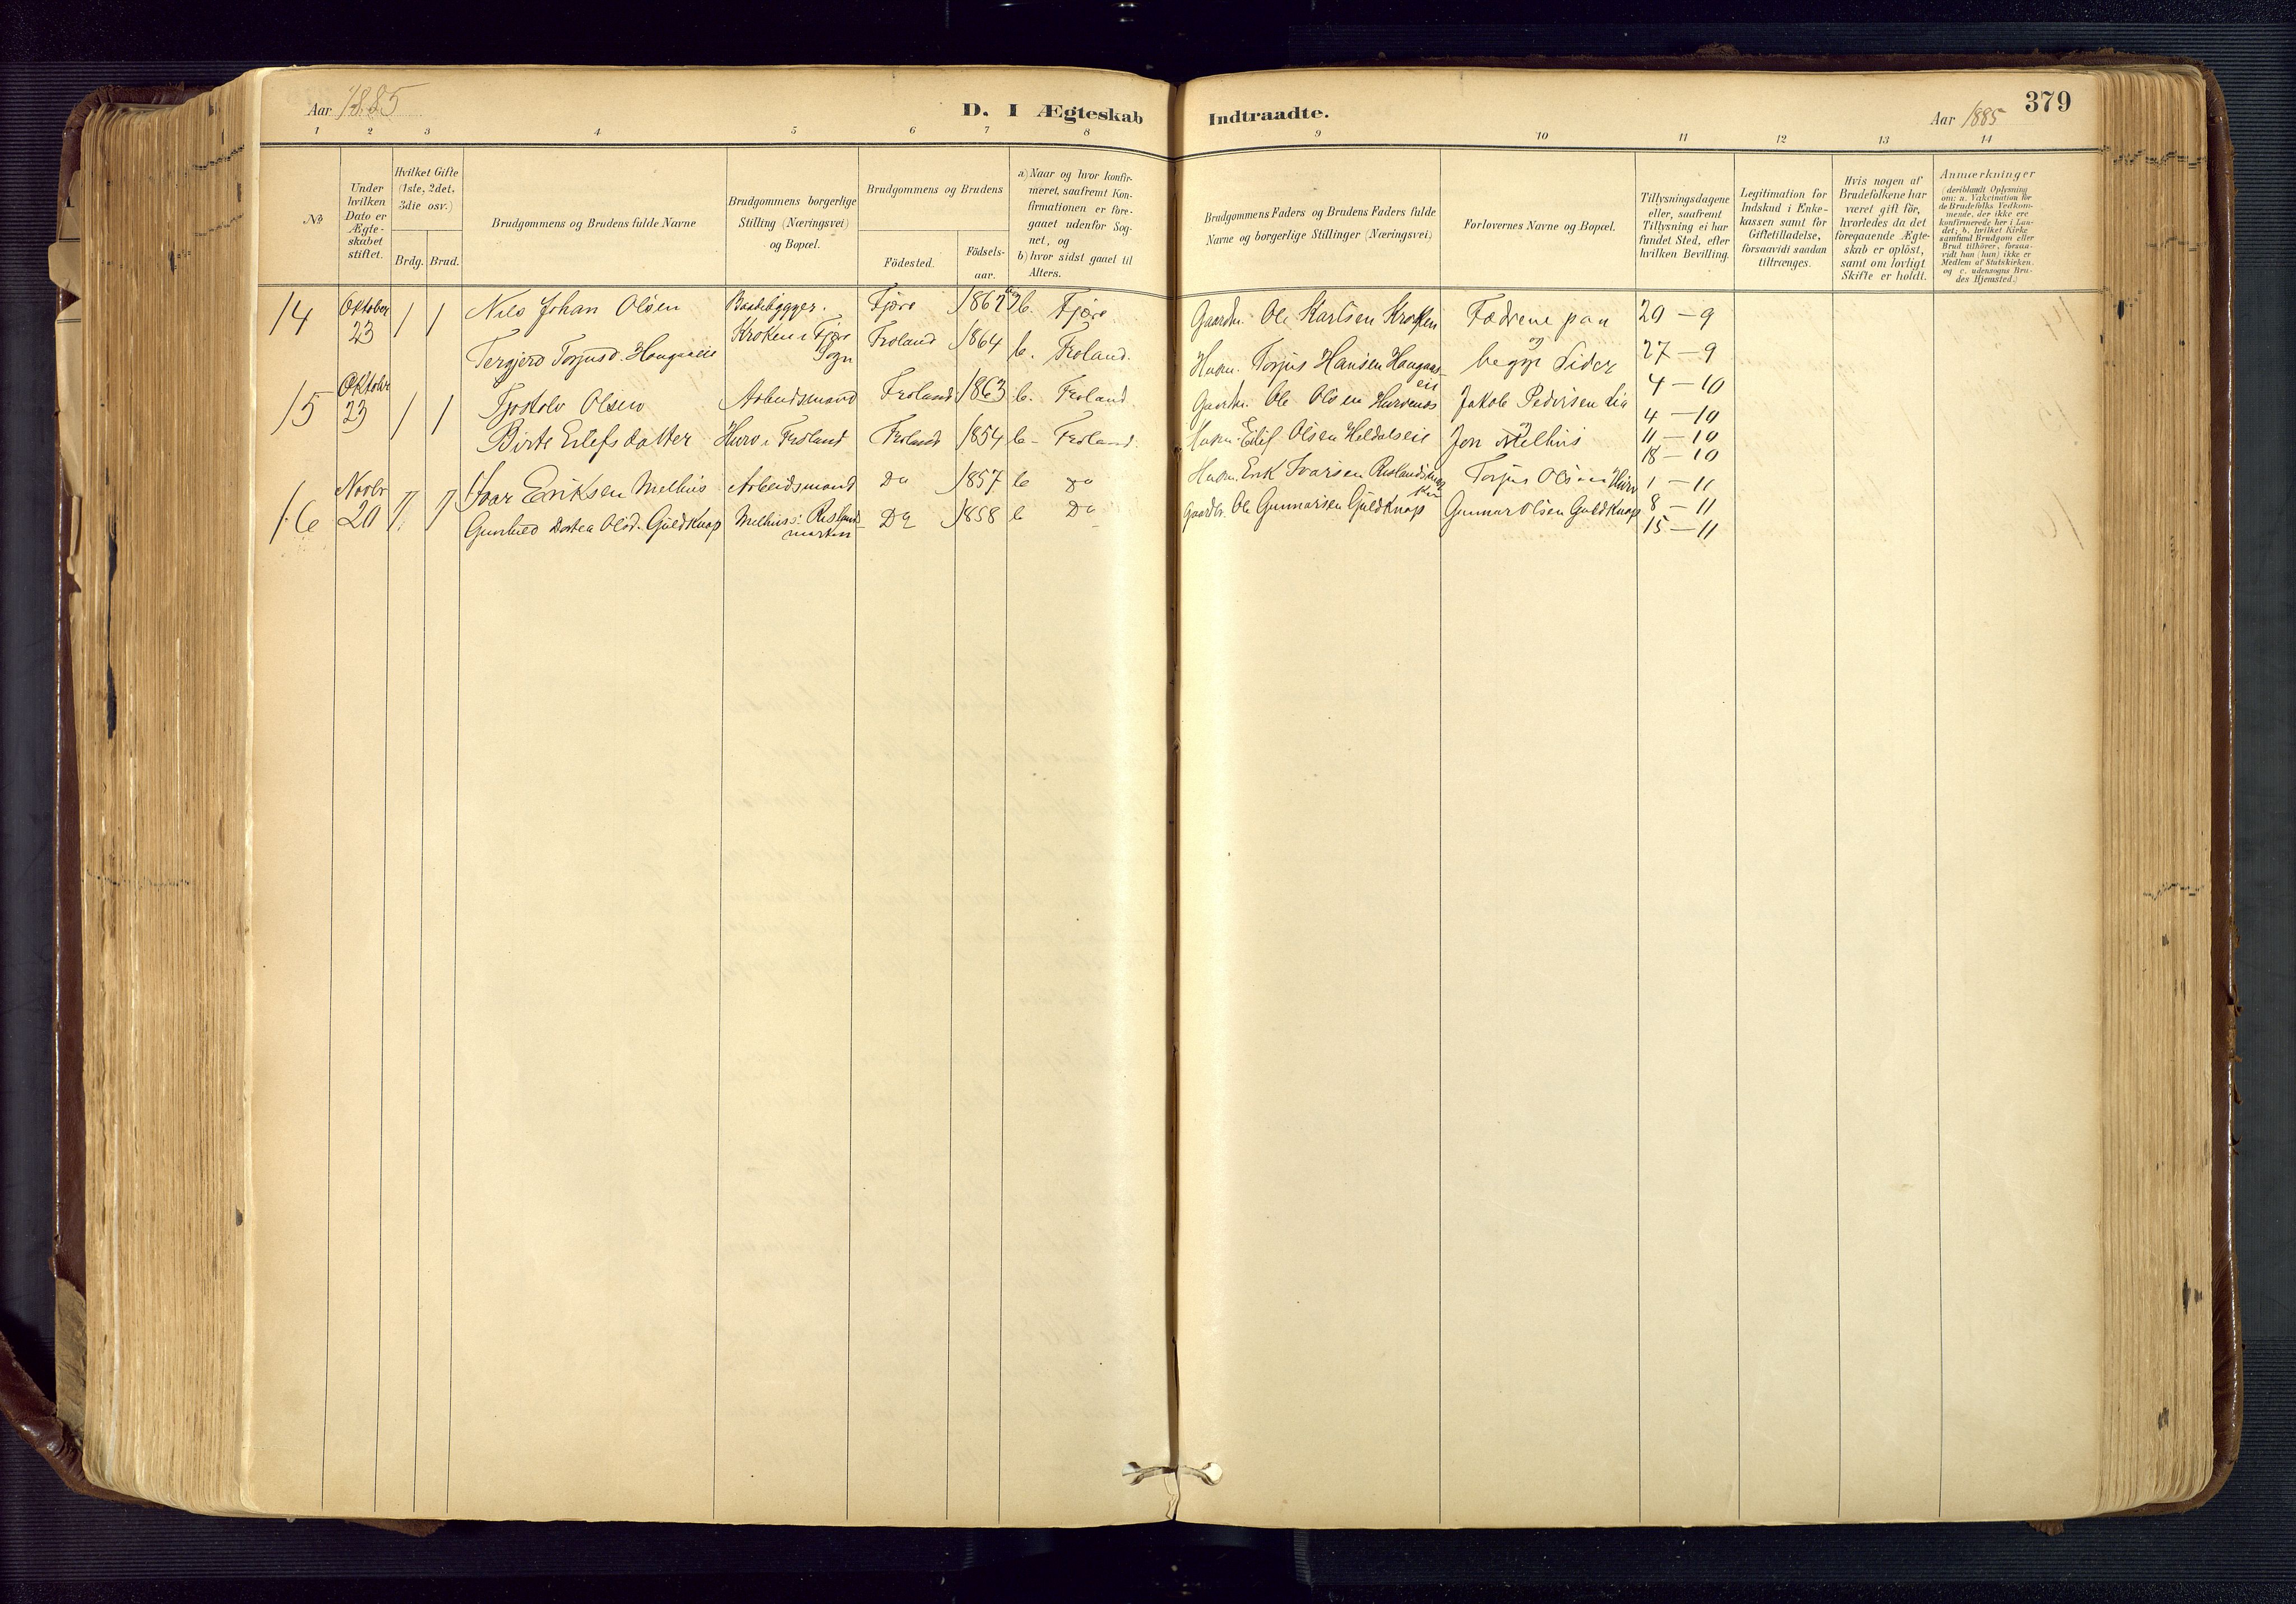 Aar 1885
D. I Ægteskab
Indtraadte.
Aar 1885
379
1 2 3 4 5 6 7 8
9 10 11 12 13 14
No
Under hvilken Dato er Ægteskabet stiftet.
Hvilket Gifte (1ste, 2det, 3die osv.)
Brdg. Brud.
Brudgommens og Brudens fulde Navne
Brudgommens borgerlige Stilling (Næringsvei) og Bopæl.
Brudgommens og Brudens
Födested.
Födsels-aar.
a) Naar og hvor konfir-
meret, saafremt Kon-
firmationen er fore-
gaaet udenfor Sog-
net, og
b) hvor sidst gaaet til
Alters.
Brudgommens Faders og Brudens Faders fulde
Navne og borgerlige Stillinger (Næringsvei)
Forlovernes Navne og Bopæl.
Tillysningsdagene
eller, saafremt
Tillysning ei har
fundet Sted, efter
hvilken Bevilling.
Legitimation for
Indskud i Enke-
kassen samt for
Giftetilladelse,
forsaavidt saadan
tiltrænges.
Hvis nogen af
Brudefolkene har
været gift för,
hvorledes da det
foregaaende Ægte-
skab er oplöst,
samt om lovligt
Skifte er holdt.
Anmærkninger
(deriblandt Oplysning
om: a. Vakcination for
de Brudefolks Vedkom-
mende, der ikke ere
konfirmerede her i Lan-
det; b. hvilket Kirke
samfund Brudgom eller
Brud tilhörer, forsaa-
vidt han (hun) ikke er
Medlem af Statskirken.
og c. udensogns Bru-
des Hjemsted.)
14 Oktober 23 1 1 Nils Johan Olsen Baadebygger. Fjære b. Fjære.
Tergjerd Torjusd. Haugaaseie Kroken i Fjære Sogn Froland 1864 b. Froland.
Gaardm. Ole Karlsen Kroken Fædrene paa 20 — 9
Husm. Torjus Hansen Haugaaseie begge Sider 27 — 9
4 — 10
15 Oktober 23 1 1 Tjostolv Olsen Arbeidsmand Froland 1863 b. Froland
Birte Eilefsdatter Hurv i Froland Froland 1854 b — Froland.
Gaardm. Ole Olsen Jakob Pedersen Lia og 4 — 10
Husm. Eilif Olsen Heldalseie Jon Melhus 11 — 10
18 — 10
16 Novbr 20 1 1 Ivar Eriksen Melhus Arbeidsmand Do 1857 b Do
Gunhild Dortea Olsd. Guldknap Melhus i Rislandmarken Do 1858 b Do
Husm. Erik Ivarsen Torjus Olsen Hurv 1 — 11
Gaardbr. Ole Gunnarsen Guldknap Gunnar Olsen Guldknap 8 — 11
15 — 11